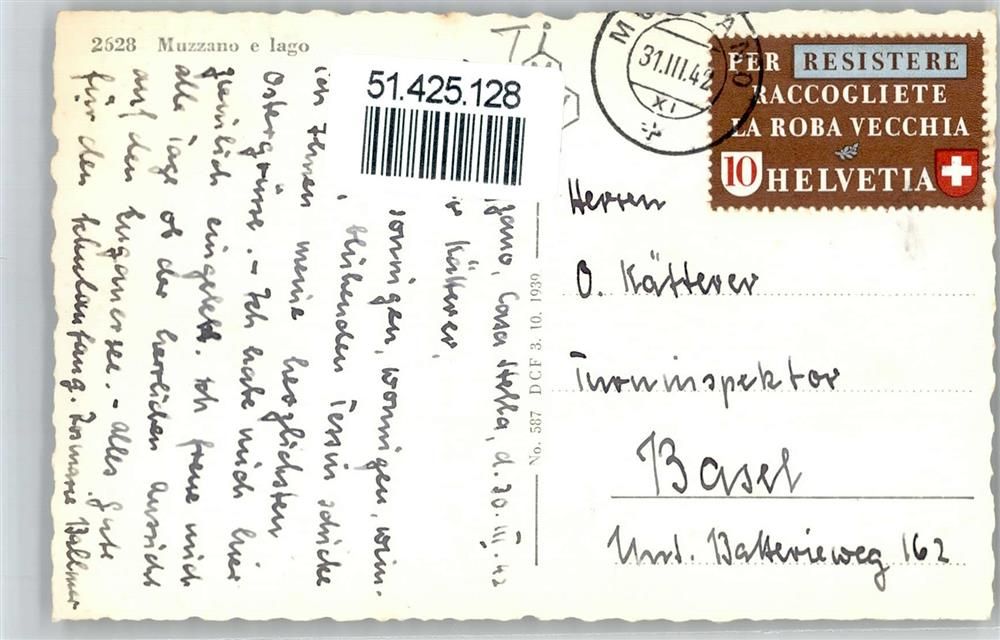 2628 Muzzano e lago
51.425.128
31.III.42
XI
PER RESISTERE
RACCOGLIETE
LA ROBA VECCHIA
10 HELVETIA
No. 587 DCF 3. 10. 1939
Herrn
O. Kätterer
Turninspektor
Basel
Unt. Batterieweg 162
gano, Casa Stella, d. 30. III. 42
Kätterer,
sonnigen, wonnigen, win-
blühenden Tessin schicke
ich Ihnen meine herzlichsten
Ostergrüsse. - Ich habe mich hier
ziemlich eingelebt. Ich freue mich
alle Tage ob der herrlichen Aussicht
auf den Luganersee. - Alles Gute
für den Schulanfang. Rosmarie Ballmer